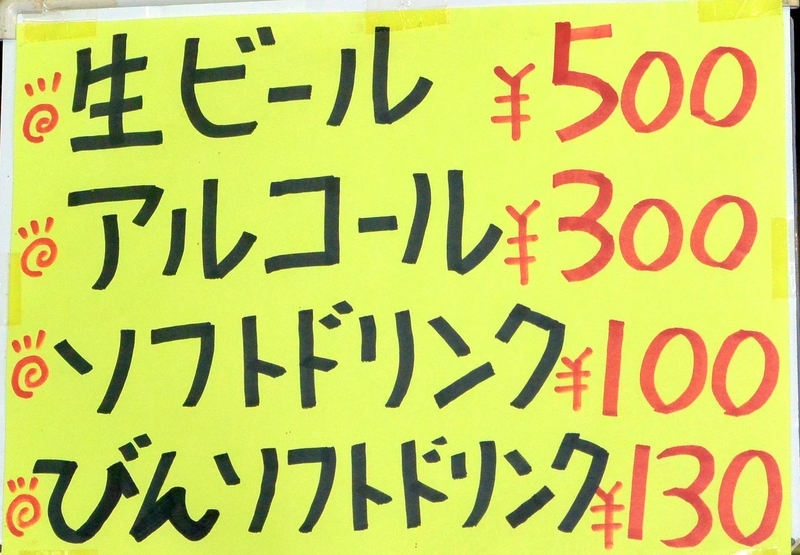 生ビール ¥500
アルコール ¥300
ソフトドリンク ¥100
びんソフトドリンク ¥130